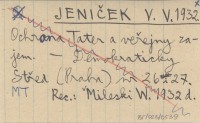 JENIČEK V. V. 1932
Ochrana Tater a veřejný zá-
jem. – Demokratický
Střed (Praha) IX, 26-27.
MT Rec.: Mileski W. 1932 d.